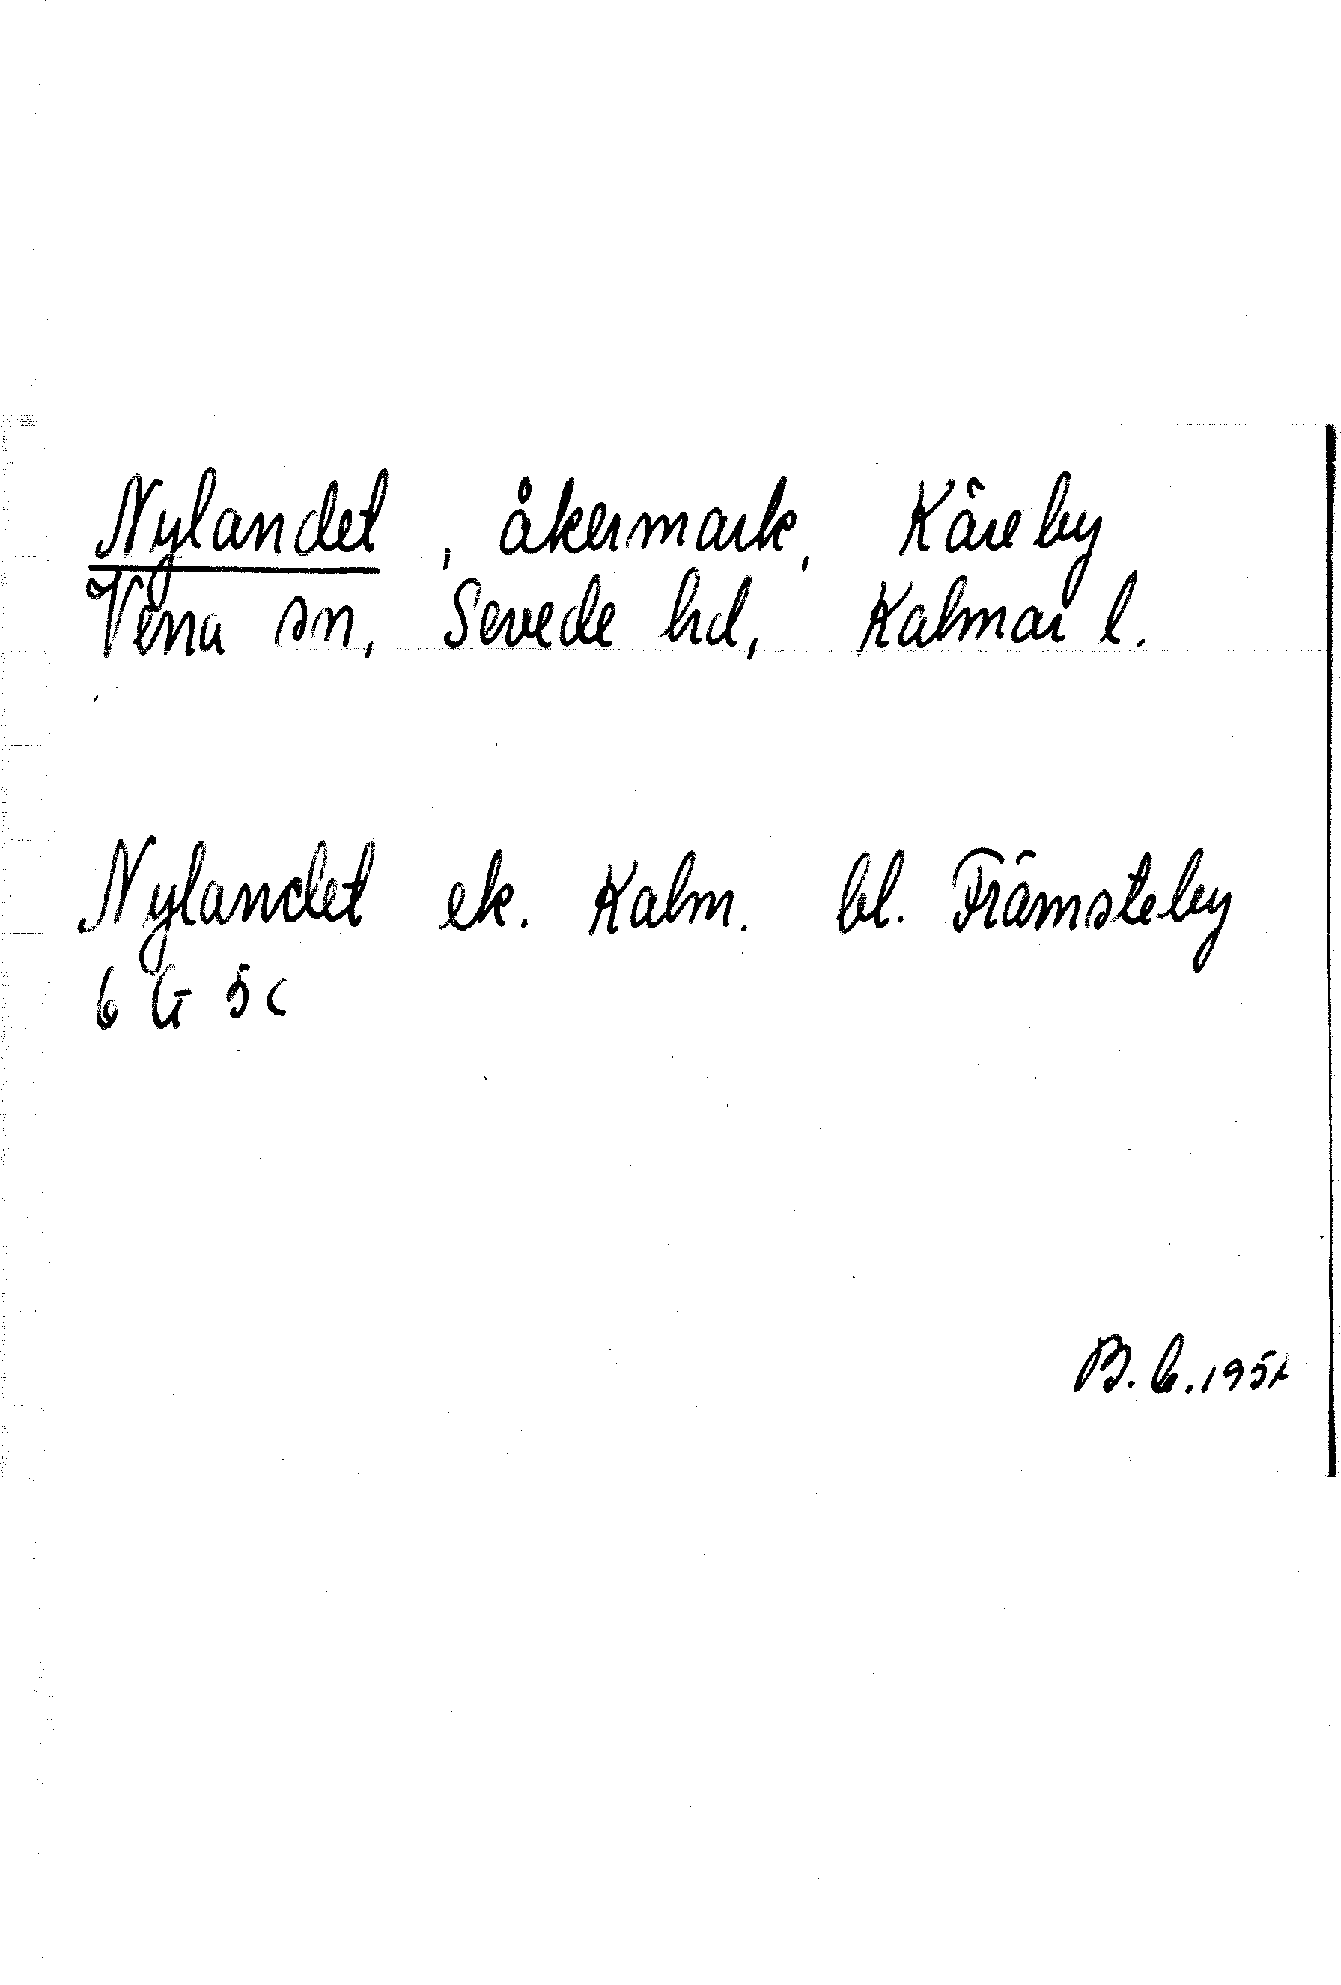 Nylandet, åkermark, Käreby
Vena sn, Sevede hd, Kalmar l.
Nylandet ek. Kalm. bl. Främsteby
6 G 5 c
B. G. 195